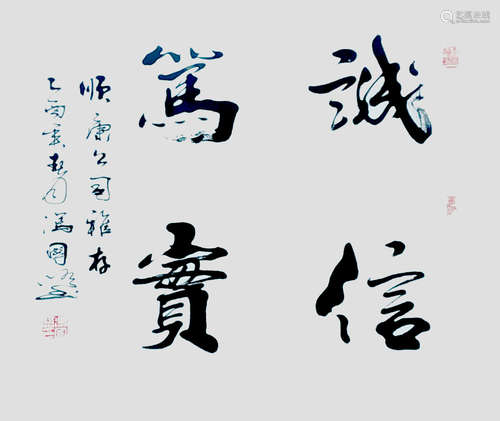 誠信
篤實
順康公司雅存
乙酉春月馮國